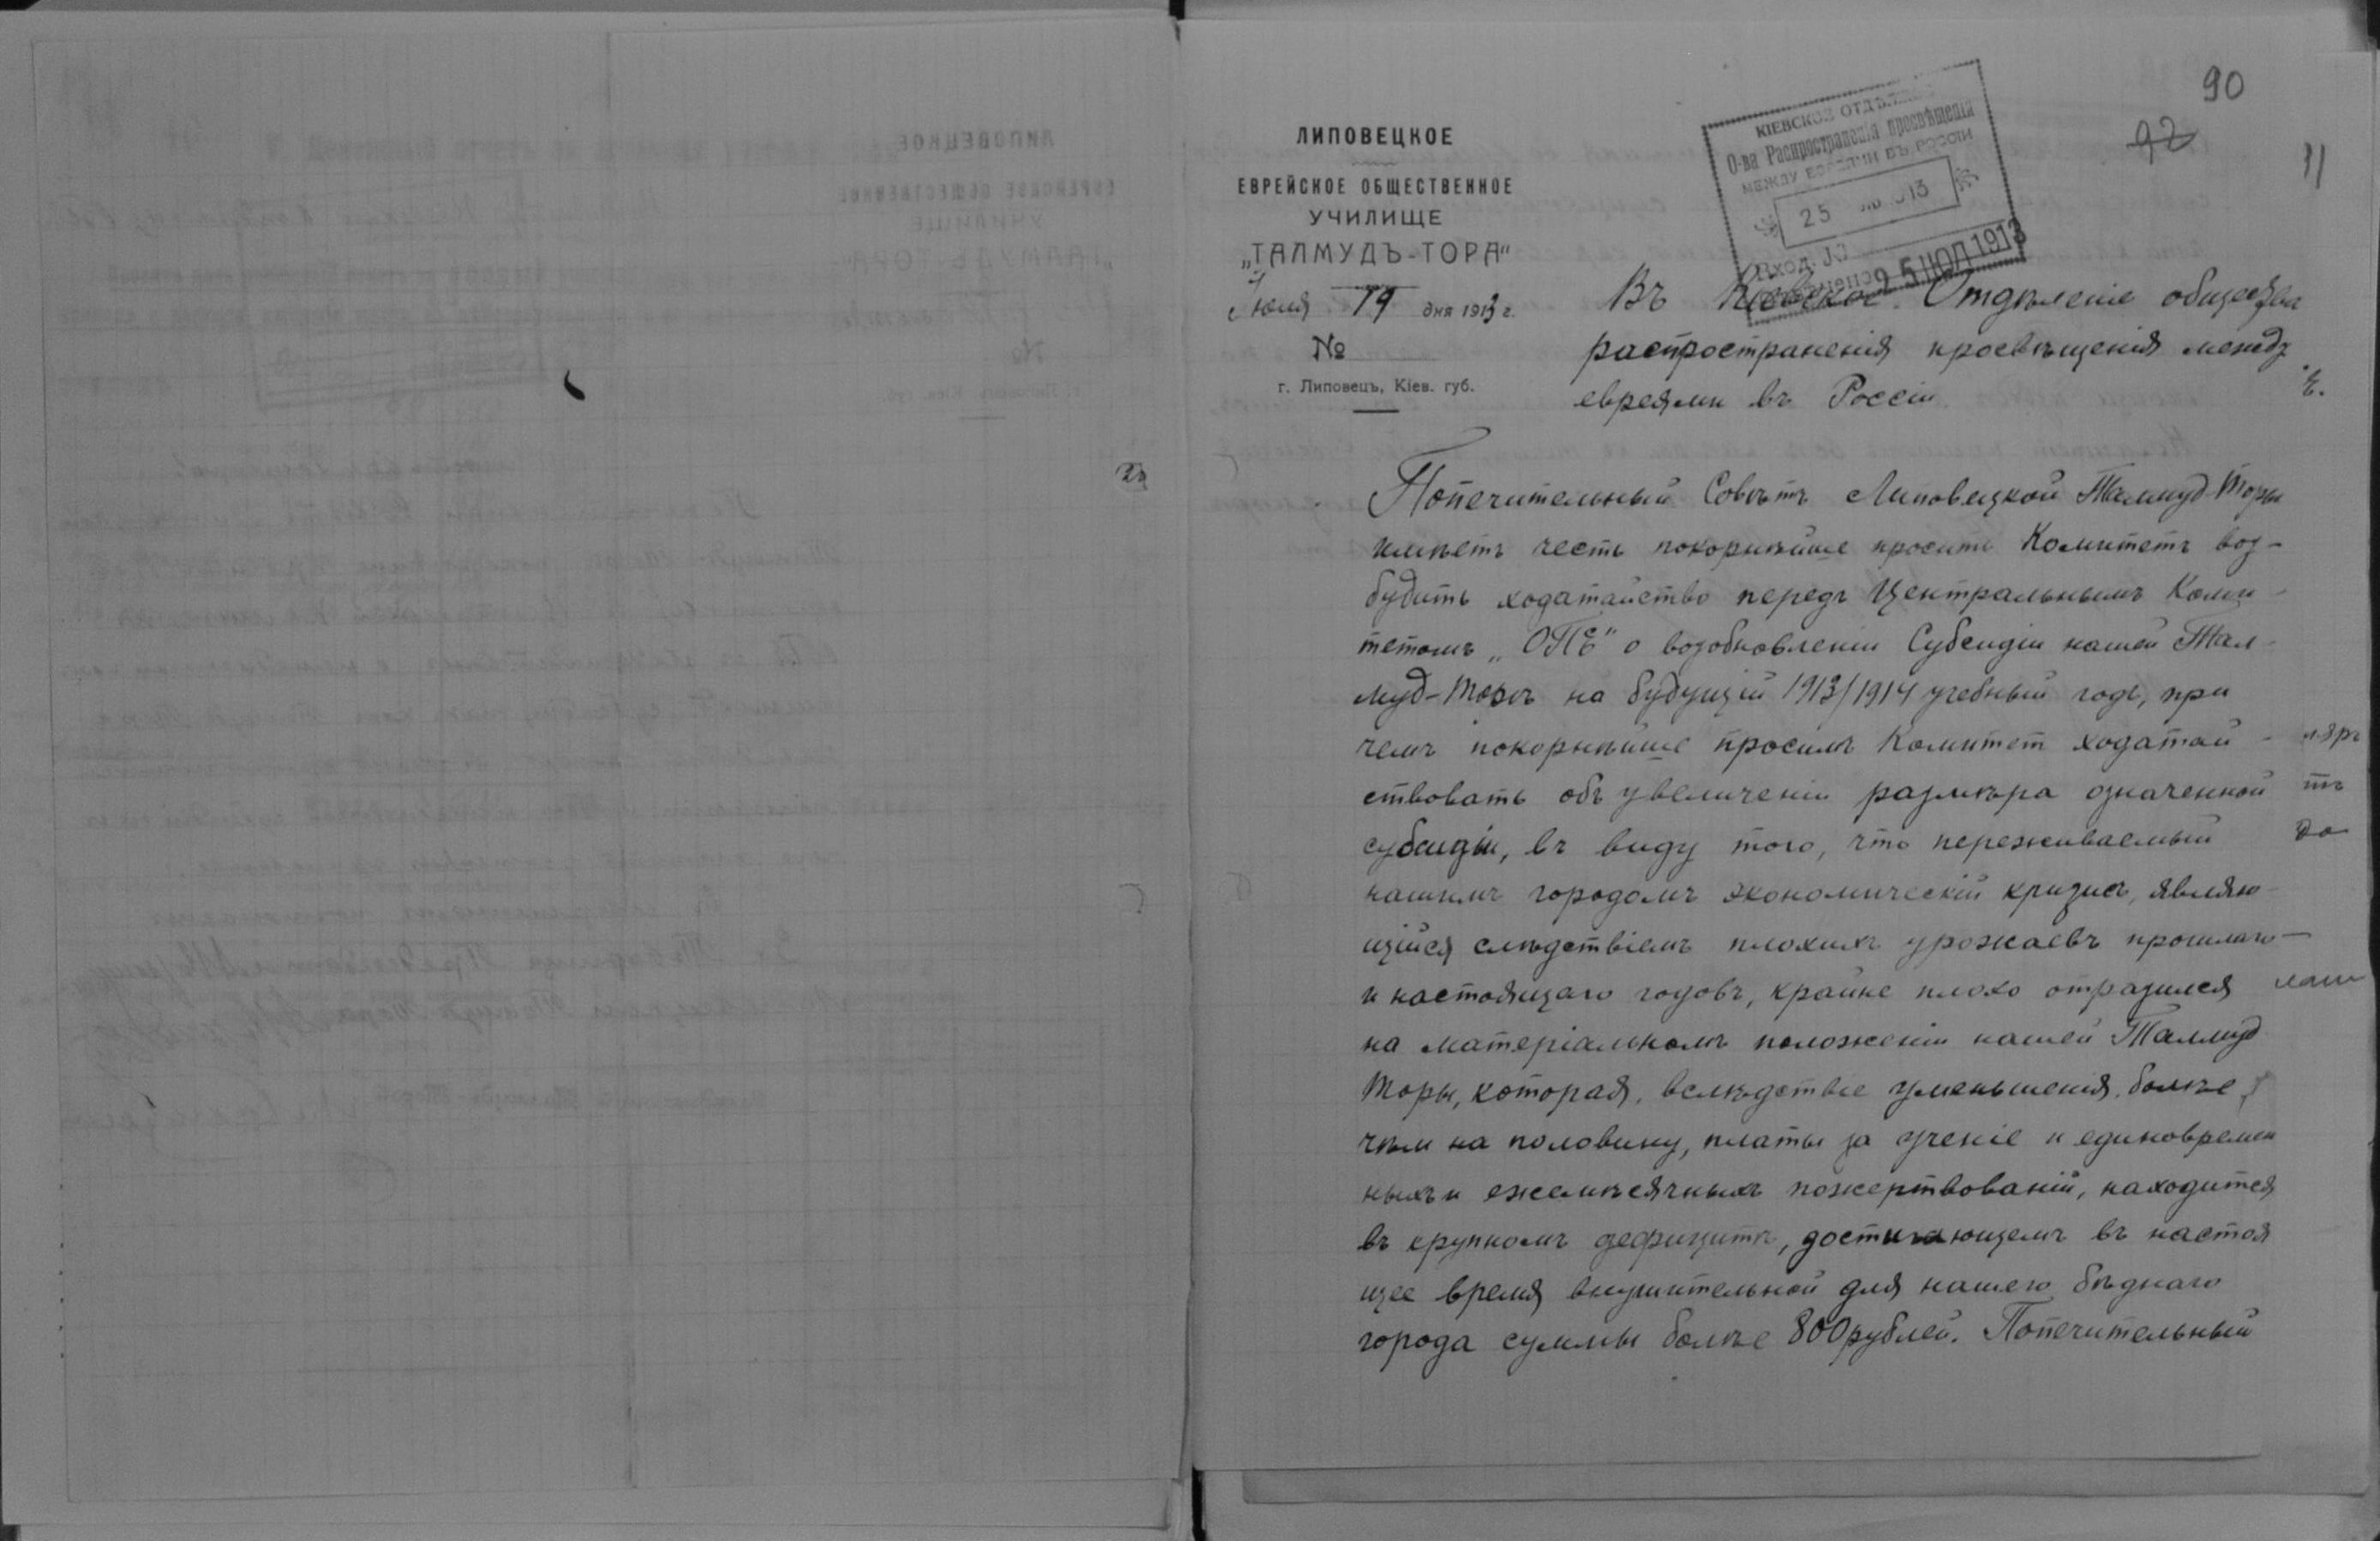 90
92
ЛИПОВЕЦКОЕ
ЕВРЕЙСКОЕ ОБЩЕСТВЕННОЕ
УЧИЛИЩЕ
„ТАЛМУДЪ-ТОРА“
Іюля 19 дня 1913 г.
№
г. Липовецъ, Кіев. губ.
КІЕВСКОЕ
О-ва Распространенія просвѣщенія
МЕЖДУ ЕВРЕЯМИ ВЪ РОССІИ
25 1913
Вход. №
25 ІЮЛ 1913
Въ Кіевское Отдѣленіе общества
распространенія просвѣщенія между
евреями въ Россіи
Попечительный Совѣтъ Липовецкой Талмуд-Торы
имѣетъ честь покорнѣйше просить Комитетъ воз-
будить ходатайство передъ Центральнымъ Коми-
тетомъ „ОПЕ“ о возобновленіи Субсидіи нашей Тал-
муд-Торѣ на будущій 1913/1914 учебный годъ, при
чемъ покорнѣйше просимъ Комитет ходатай-
ствовать объ увеличеніи размѣра означенной
субсидіи, въ виду того, что переживаемый
нашимъ городомъ экономическій кризисъ, являю-
щійся слѣдствіемъ плохихъ урожаевъ прошлаго
и настоящаго годовъ, крайне плохо отразился
на матеріальномъ положеніи нашей Талмуд
Торы, которая, вслѣдствіе уменьшенія, болѣе
чѣм на половину, платы за ученіе и единовремен
ныхъ и ежемѣсячныхъ пожертвованій, находится
въ крупномъ дефицитѣ, достигающемъ въ настоя
щее время внушительной для нашего бѣднаго
города суммы болѣе 800 рублей. Попечительный